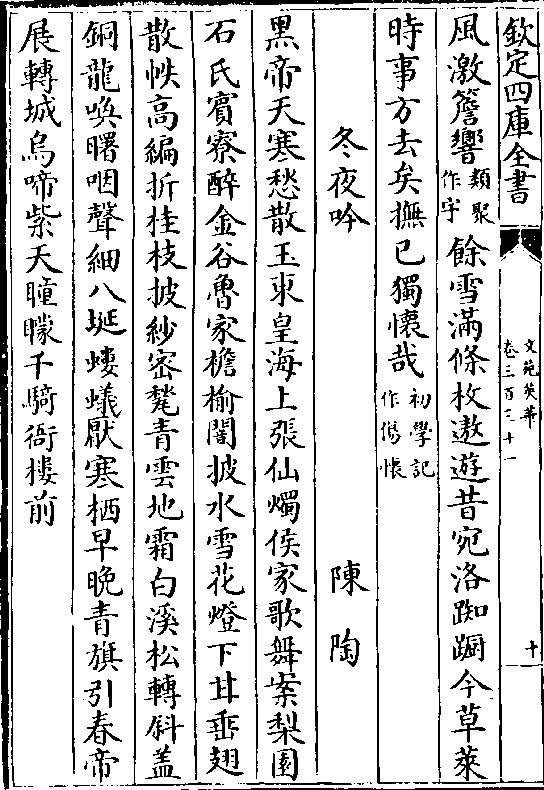 欽定四庫全書
文苑英華
卷三百三十一
十
風激簷響類聚作字餘雪滿條枚遨遊昔宛洛踟蹰今草萊
時事方去矣撫已獨懷哉初學記作傷懷
冬夜吟 陳陶
黑帝天寒愁散玉東皇海上張仙燭侯家歌舞案梨園
石氏賓寮醉金谷魯家檐榆闇披水雪花燈下甘垂翅
散帙高編折桂枝披紗密㲠青雲地霜白溪松轉斜盖
銅龍喚曙咽聲細八埏螻蟻厭寒栖早晚青旗引春帝
展轉城烏啼紫天曈曚千騎衙樓前